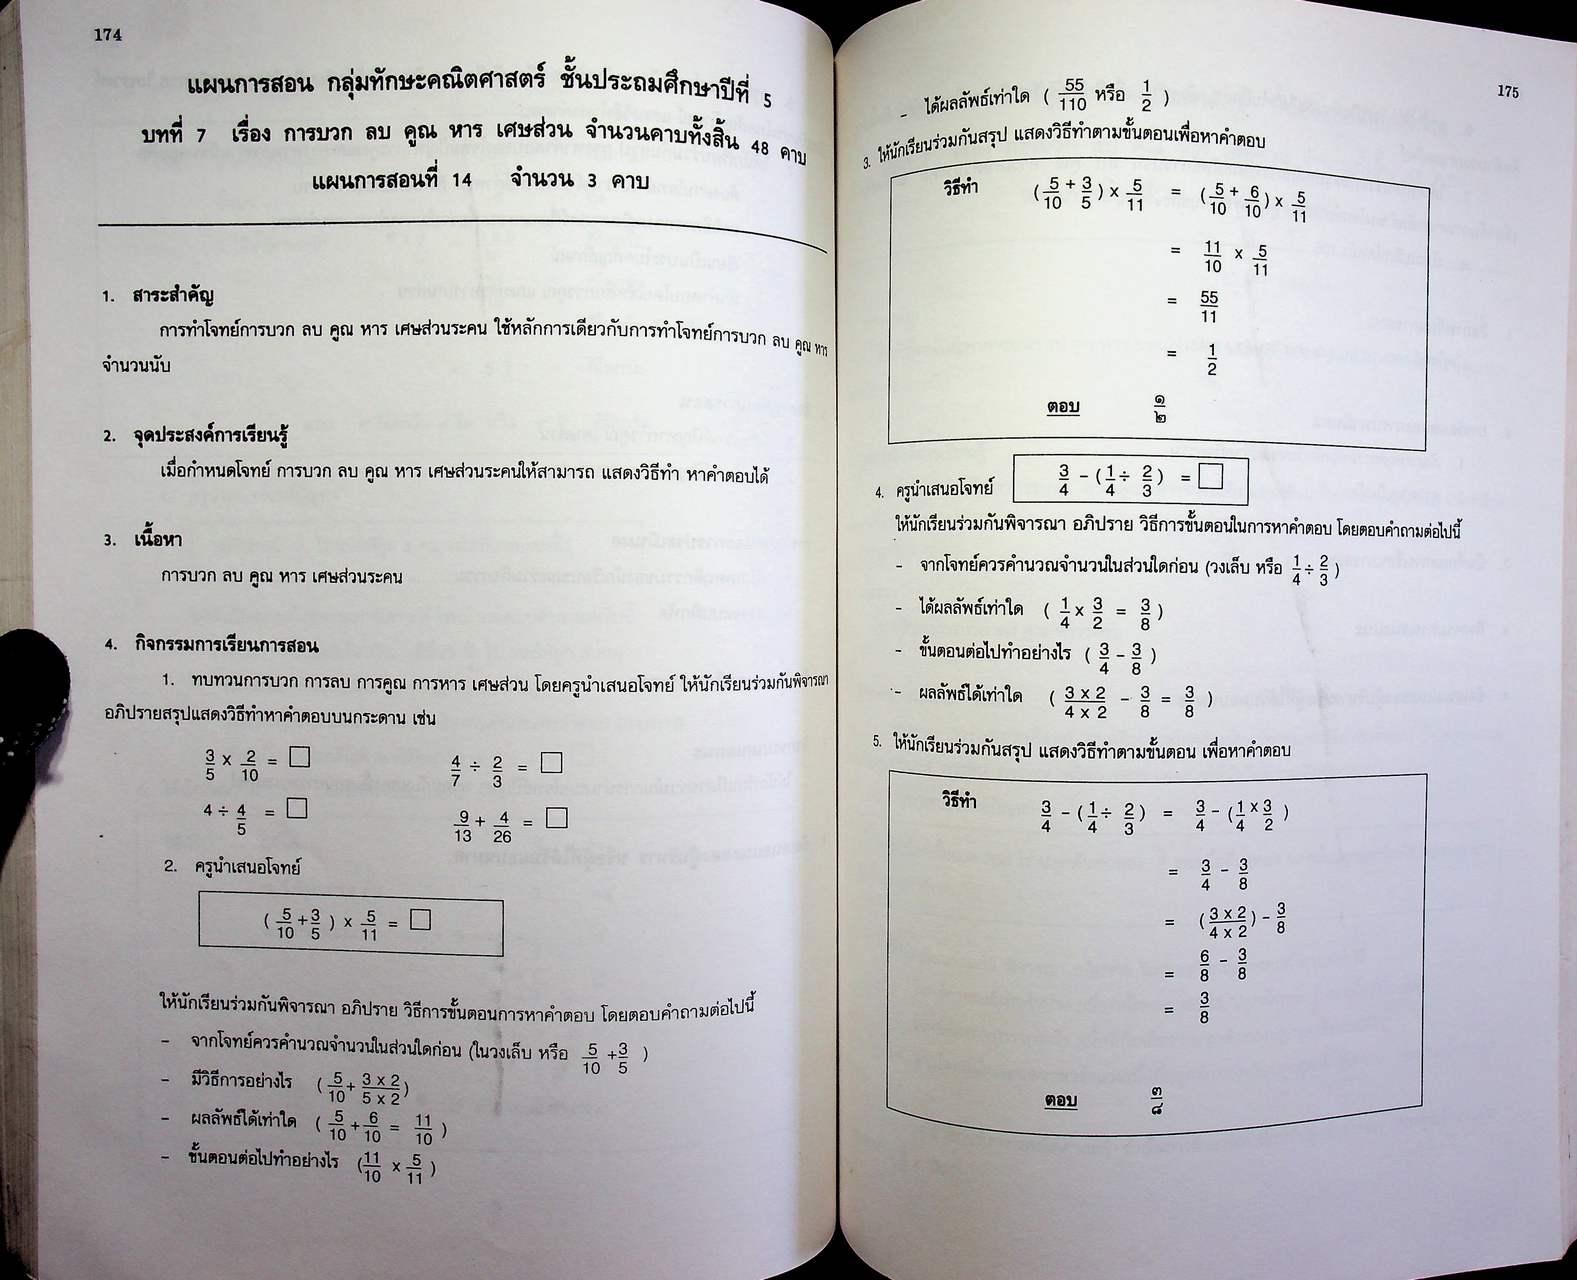 174
แผนการสอน กลุ่มทักษะคณิตศาสตร์ ชั้นประถมศึกษาปีที่ 5
บทที่ 7 เรื่อง การบวก ลบ คูณ หาร เศษส่วน จำนวนคาบทั้งสิ้น 48 คาบ
แผนการสอนที่ 14 จำนวน 3 คาบ
1. สาระสำคัญ
การทำโจทย์การบวก ลบ คูณ หาร เศษส่วนระคน ใช้หลักการเดียวกับการทำโจทย์การบวก ลบ คูณ หาร
จำนวนนับ
2. จุดประสงค์การเรียนรู้
เมื่อกำหนดโจทย์ การบวก ลบ คูณ หาร เศษส่วนระคนให้สามารถ แสดงวิธีทำ หาคำตอบได้
3. เนื้อหา
การบวก ลบ คูณ หาร เศษส่วนระคน
4. กิจกรรมการเรียนการสอน
1. ทบทวนการบวก การลบ การคูณ การหาร เศษส่วน โดยครูนำเสนอโจทย์ ให้นักเรียนร่วมกันพิจารณา
อภิปรายสรุปแสดงวิธีทำหาคำตอบบนกระดาน เช่น
3/5 x 2/10 = □ 4/7 ÷ 2/3 = □
4 ÷ 4/5 = □ 9/13 + 4/26 = □
2. ครูนำเสนอโจทย์
( 5/10 + 3/5 ) x 5/11 = □
ให้นักเรียนร่วมกันพิจารณา อภิปราย วิธีการขั้นตอนการหาคำตอบ โดยตอบคำถามต่อไปนี้
- จากโจทย์ควรคำนวณจำนวนในส่วนใดก่อน (ในวงเล็บ หรือ 5/10 + 3/5 )
- มีวิธีการอย่างไร ( 5/10 + 3 x 2/5 x 2 )
- ผลลัพธ์ได้เท่าใด ( 5/10 + 6/10 = 11/10 )
- ขั้นตอนต่อไปทำอย่างไร ( 11/10 x 5/11 )
175
- ได้ผลลัพธ์เท่าใด ( 55/110 หรือ 1/2 )
3. ให้นักเรียนร่วมกันสรุป แสดงวิธีทำตามขั้นตอนเพื่อหาคำตอบ
วิธีทำ ( 5/10 + 3/5 ) x 5/11 = ( 5/10 + 6/10 ) x 5/11
= 11/10 x 5/11
= 55/11
= 1/2
ตอบ ๑/๒
4. ครูนำเสนอโจทย์ 3/4 - ( 1/4 ÷ 2/3 ) = □
ให้นักเรียนร่วมกันพิจารณา อภิปราย วิธีการขั้นตอนในการหาคำตอบ โดยตอบคำถามต่อไปนี้
- จากโจทย์ควรคำนวณจำนวนในส่วนใดก่อน (วงเล็บ หรือ 1/4 ÷ 2/3 )
- ได้ผลลัพธ์เท่าใด ( 1/4 x 3/2 = 3/8 )
- ขั้นตอนต่อไปทำอย่างไร ( 3/4 - 3/8 )
- ผลลัพธ์ได้เท่าใด ( 3 x 2/4 x 2 - 3/8 = 3/8 )
5. ให้นักเรียนร่วมกันสรุป แสดงวิธีทำตามขั้นตอน เพื่อหาคำตอบ
วิธีทำ 3/4 - ( 1/4 ÷ 2/3 ) = 3/4 - ( 1/4 x 3/2 )
= 3/4 - 3/8
= ( 3 x 2/4 x 2 ) - 3/8
= 6/8 - 3/8
= 3/8
ตอบ ๓/๘